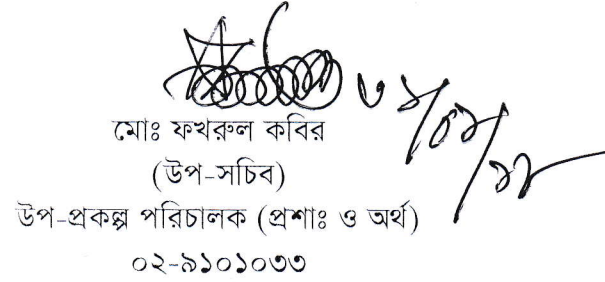 মোঃ ফখরুল কবির
(উপ-সচিব)
উপ-প্রকল্প পরিচালক (প্রশাঃ ও অর্থ)
০২-৯১০১০৩৩